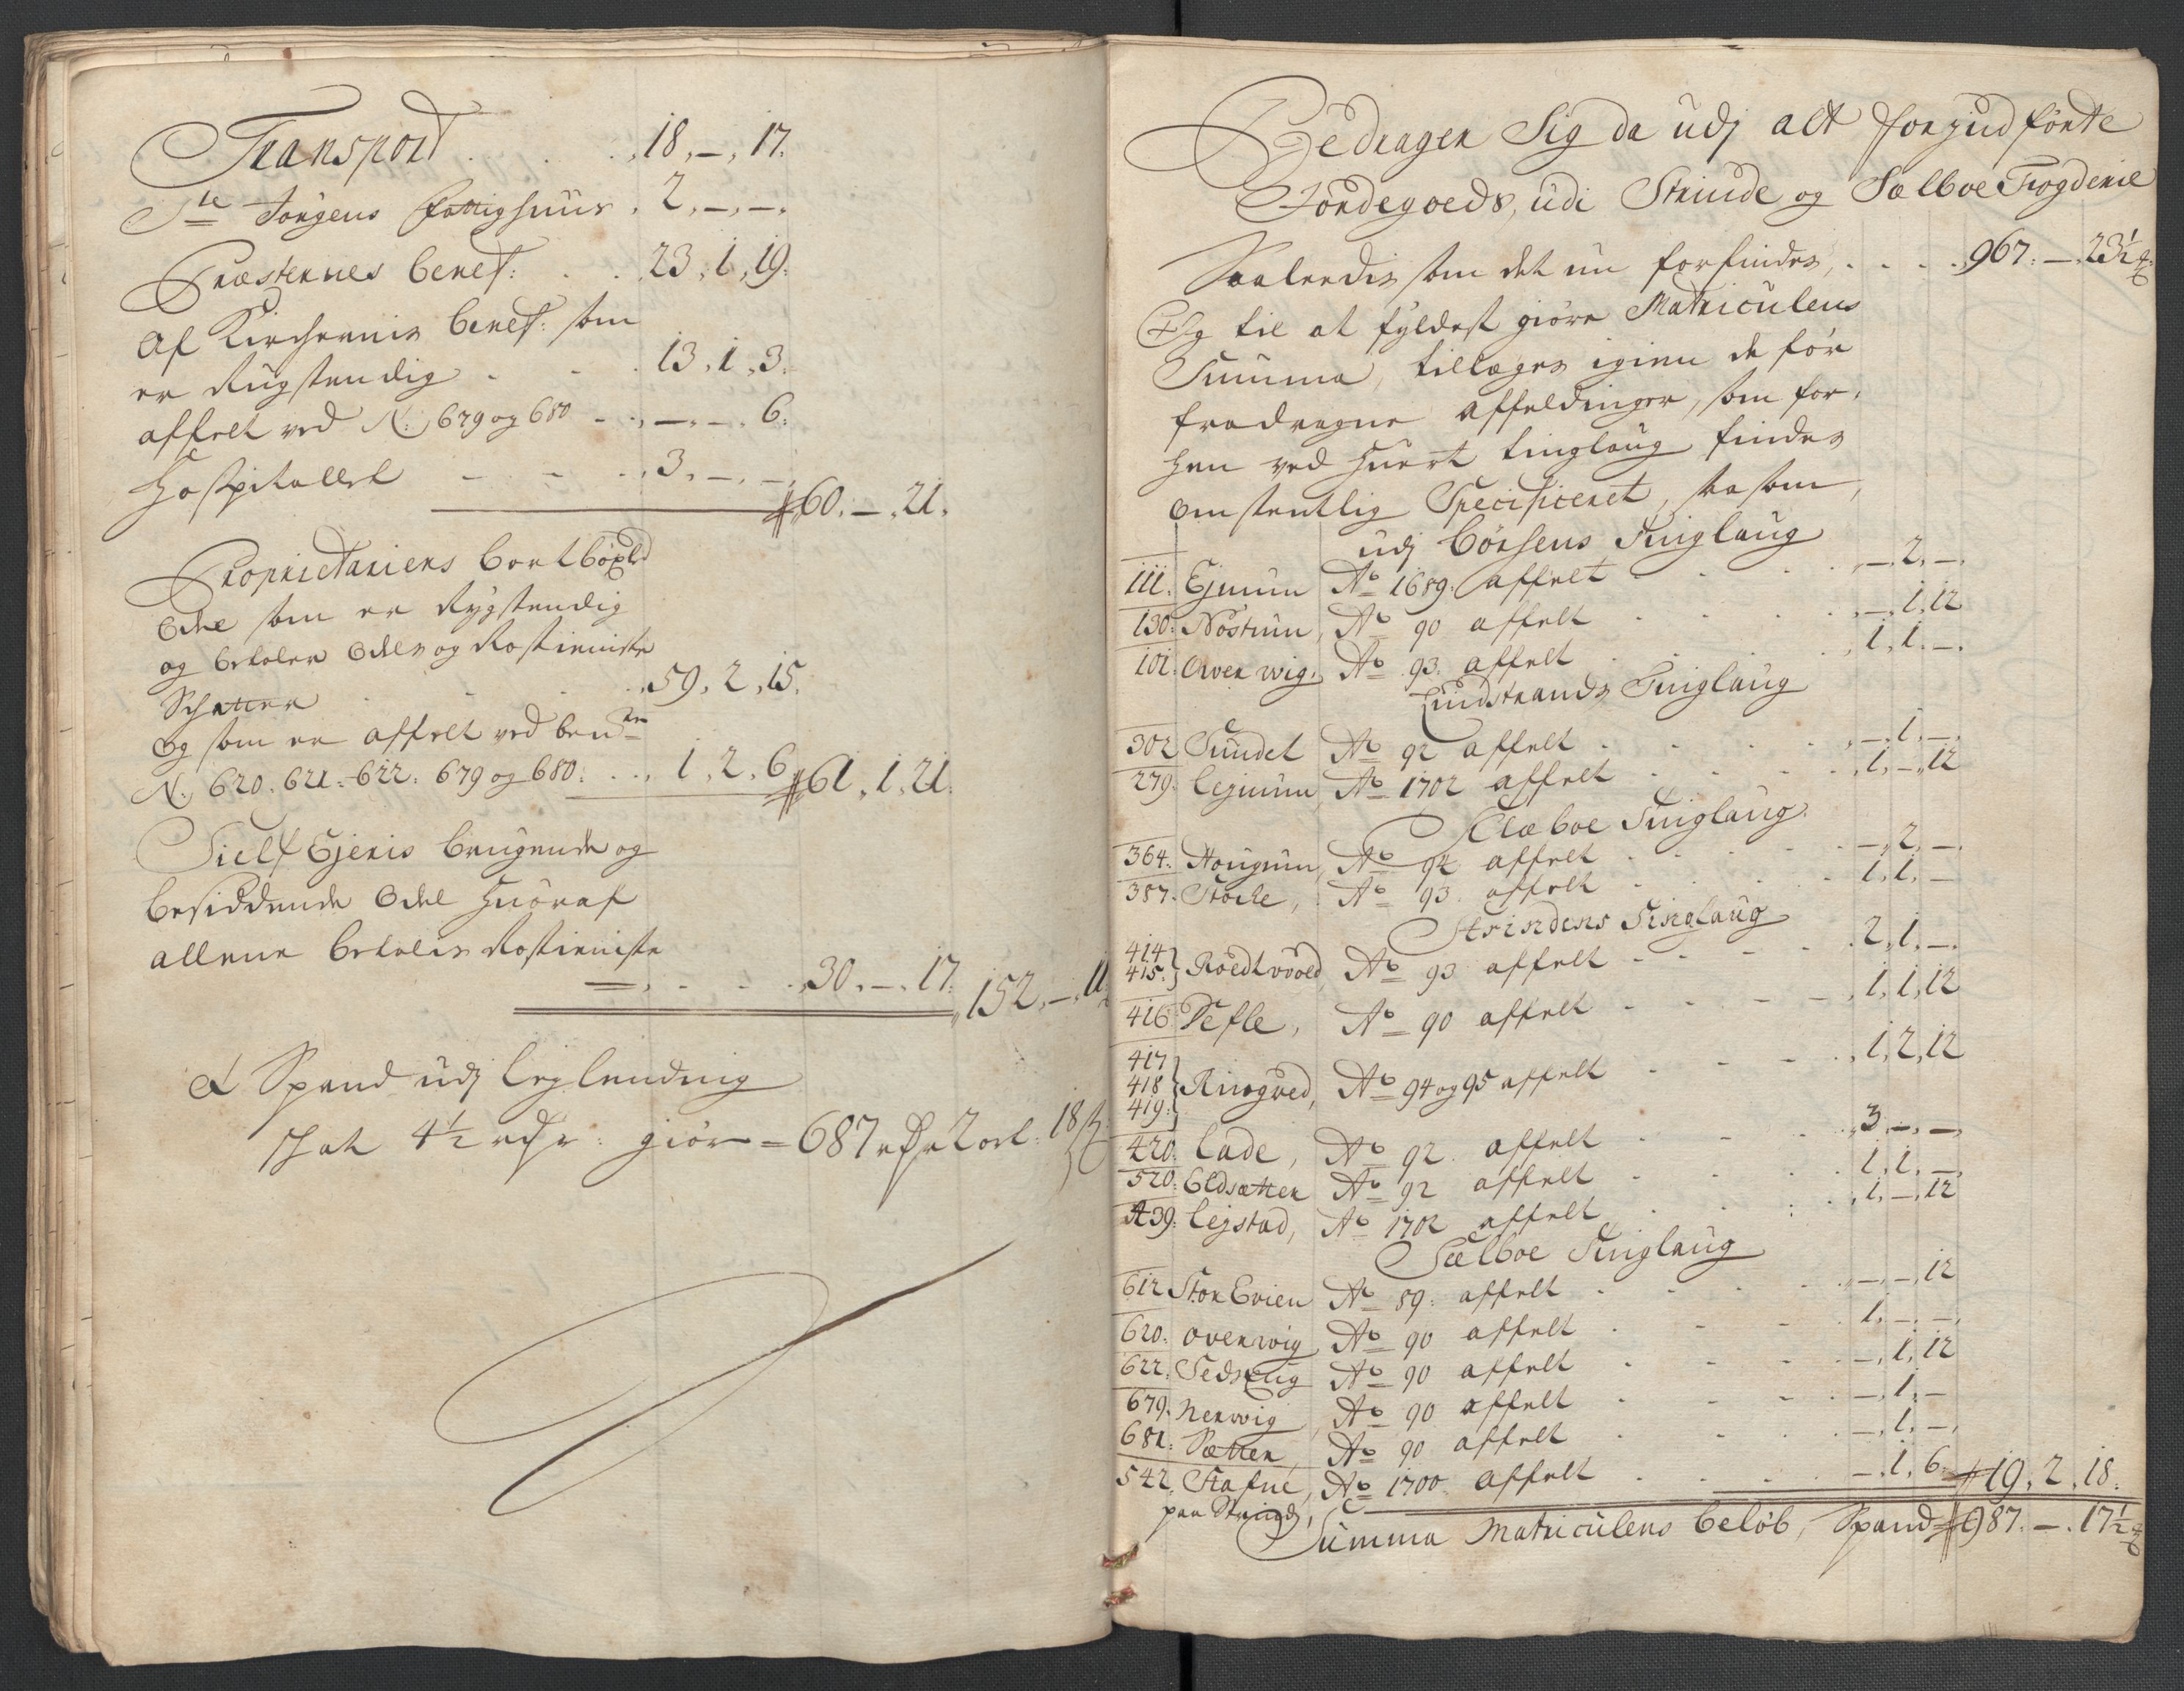 Transport . . . 18. – . 17.
Ste Jørgens fattighuus . 2. – . – .
Præsternes benef: . . 23. 1. 19.
Af Kirchernis benef: som
er Rugstendig - - . 13. 1. 3.
affelt ved N: 679 og 680 - . – . – . 6.
Hospitallet - - . 3. – . –
60. – . 21.
Proprietariers bortböxl:
Odel som er Rygstendig
og betaler Odels og Rostieniste
Schatter . . . 59. 2. 15.
og som er affelt ved ben:te
N: 620. 621. 622. 679 og 680: . . 1. 2. 6
61. 1. 21.
Sielf Ejeris brugende og
besiddende Odel huoraf
allene betalis Rostieniste
= . . . 30. – . 17.
152. – . 11
a Spand udj leylending
schat 4½ rdr: giör = 687 rdr 2 ort: 18 ß
Bedrager Sig da udj alt forjudförte
Jordegoeds, udi Strinde og Sælboe Fogderie
Saaledis som det nu forfindes, . . . 967. – . 23½
Og til at fyldest giöre Matriculens
Summa, tillegges igien de för
fradragne affeldinger, som for,
hen ved huert tinglaug findes
omstentlig Specificeret, saasom,
udj Börsens Tinglaug
111. Ejmum Ao 1689. affelt . . . – . 2. – .
130. Nöstum, Ao 90 affelt . . . – . 1. 12
101. Over wig. Ao 93. affelt . . . 1. 1. – .
Lindstrands Tinglaug
302 Sundet Ao 92 affelt . . . – . 1. – .
279. lejnum Ao 1702 affelt . . . 1. – . 12
Klæboe Tinglaug
364. Hougum, Ao 92 affelt . . . – . 2. – .
387. Stocke, Ao 93. affelt . . . 1. 1. –
Strindens Tinglaug
414
415. Roedtvoold Ao 93 affelt . . . 2. 1. – .
416 Tefle, Ao 90 affelt . . . 1. 1. 12
417
418 Ringved, Ao 94 og 95 affelt . . . 1. 2. 12
419.
420. lade, Ao 92. affelt . . . 3. – . – .
520. Eldsætter Ao 92 affelt . . . 1. 1. – .
439. lejstad, Ao 1702 affelt . . . 1. – . 12
Sælboe Tinglaug
612 Stor Evien Ao 89. affelt . . . – . – . 12
620. overwig Ao 90 affelt . . . 1. – . – .
622. Ao 90 affelt . . . – . 1. 12
679. nerwig Ao 90 affelt . . . – . 1. –
681. Sætter, Ao 90 affelt . . . – . 1. – .
542. Stafne, Ao 1700. affelt . . . – . 1. 6.
19. 2. 18.
paa Strind,
Summa Matriculens belöb, Spand 987. – . 17½